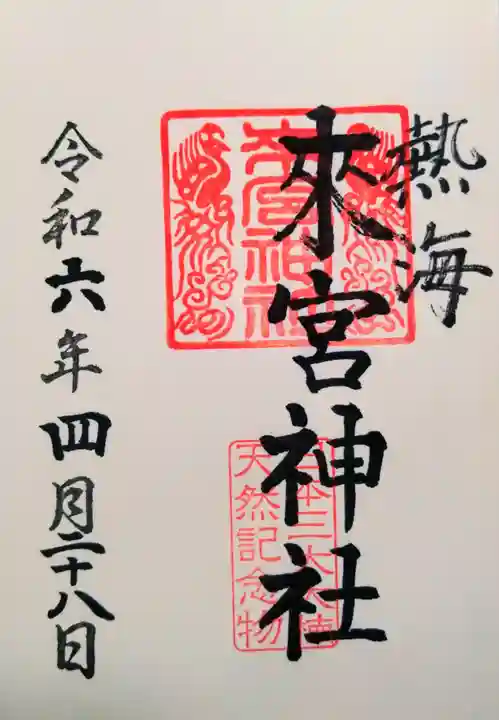 熱海
來宮神社
來宮神社
日本三大大楠
天然記念物
令和六年四月二十八日